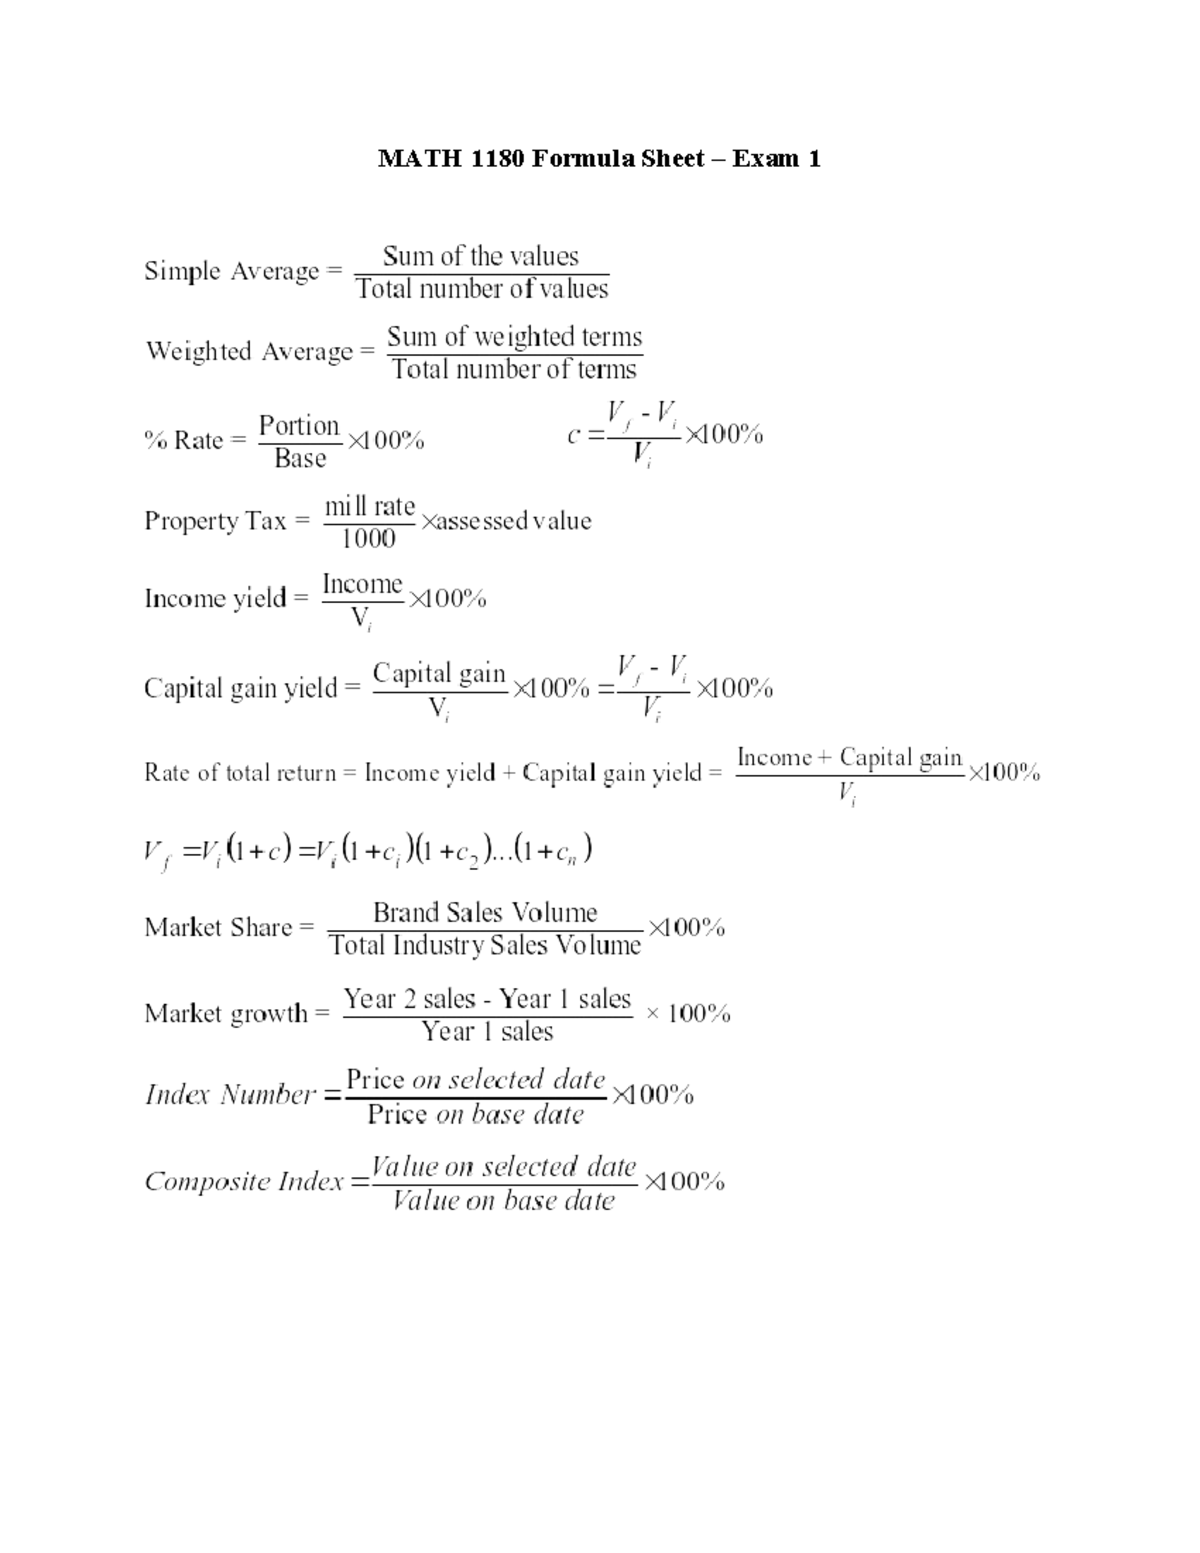 MATH 1180 Formula Sheet – Exam 1
Simple Average = Sum of the values / Total number of values
Weighted Average = Sum of weighted terms / Total number of terms
% Rate = Portion / Base ×100% c = V_f - V_i / V_i ×100%
Property Tax = mill rate / 1000 ×assessed value
Income yield = Income / V_i ×100%
Capital gain yield = Capital gain / V_i ×100% = V_f - V_i / V_i ×100%
Rate of total return = Income yield + Capital gain yield = Income + Capital gain / V_i ×100%
V_f =V_i(1+c)=V_i(1+c_i)(1+c_2)...(1+c_n)
Market Share = Brand Sales Volume / Total Industry Sales Volume ×100%
Market growth = Year 2 sales - Year 1 sales / Year 1 sales × 100%
Index Number = Price on selected date / Price on base date ×100%
Composite Index = Value on selected date / Value on base date ×100%